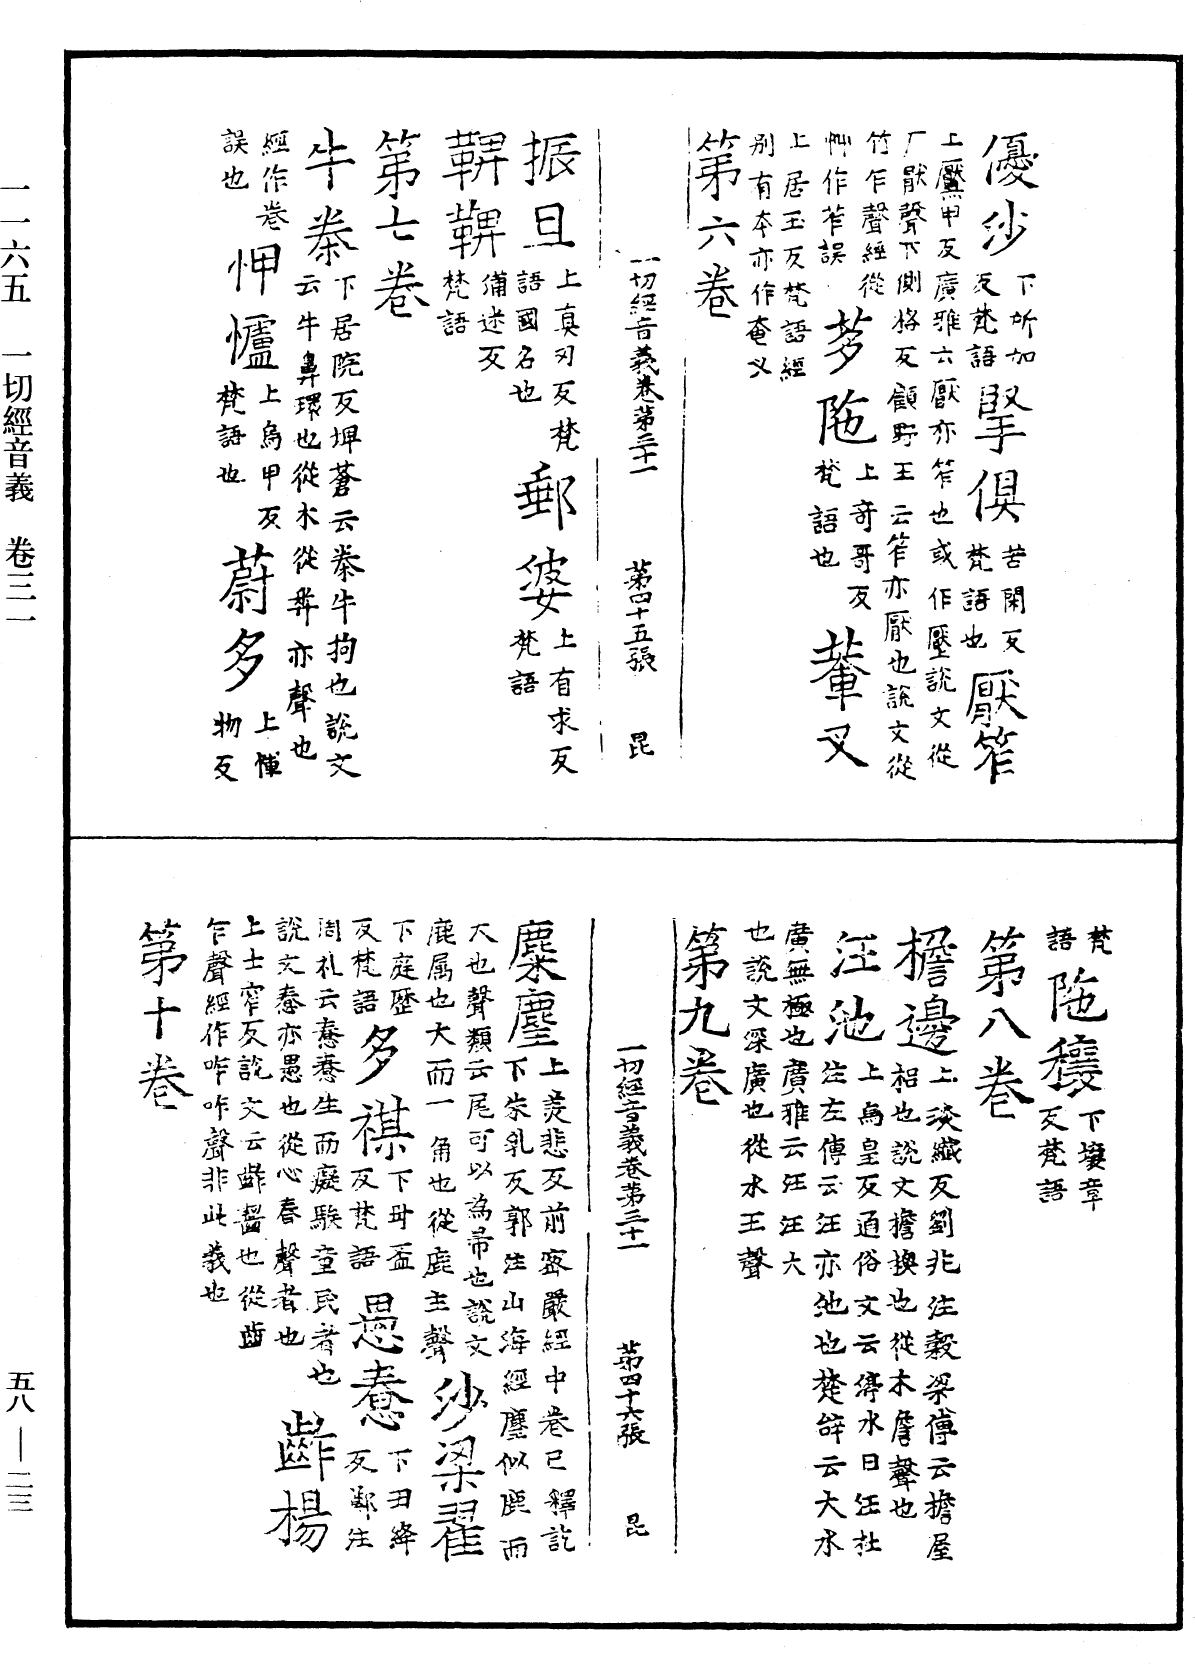 優沙下所加反梵語掔俱苦閑反梵語也厭笮
上黶甲反廣雅云厭亦笮也或作壓說文從
厂猒聲下側格反顧野王云笮亦厭也說文從
竹乍聲經從艸作苲誤
茤陁上哥哥反梵語也輦叉
上居玉反梵語經別有本亦作奄叉
第六卷
一切經音義卷第三十一 第四十五張 昆
振旦上真刃反梵語國名也郵婆上有求反梵語
鞞鞞備迷反梵語
第七卷
牛桊下居院反埤蒼云桊牛拘也說文云牛鼻環也從木從𢍏亦聲也
經作卷誤也
呷㠠上烏甲反梵語也蔚多上惲物反
梵語
陁穰下壤章反梵語
第八卷
檐邊上琰纖反劉兆注穀梁傅云檐屋梠也說文擔換也從木詹聲也
汪池上烏皇反通俗文云停水曰汪杜注左傳云汪亦池也楚辝云大水
廣無極也廣雅云汪汪大也說文深廣也從水王聲
第九卷
一切經音義卷第三十一 第四十六張 昆
麋麈上美悲反前密嚴經中卷已釋訖下朱乳反郭注山海經麈似鹿而
大也聲類云尾可以為帚也說文鹿属也大而一角也從鹿主聲
沙梁翟下庭歷反梵語
多祺下母盃反梵語
愚惷下丑絳反鄭注
周礼云惷惷生而癡騃童民者也說文惷亦愚也從心舂聲者也
齰楊
上士窄反說文云齰齧也從齒乍聲經作咋咋聲非此義也
第十卷
一一六五 一切經音義 卷三一
五八—二三